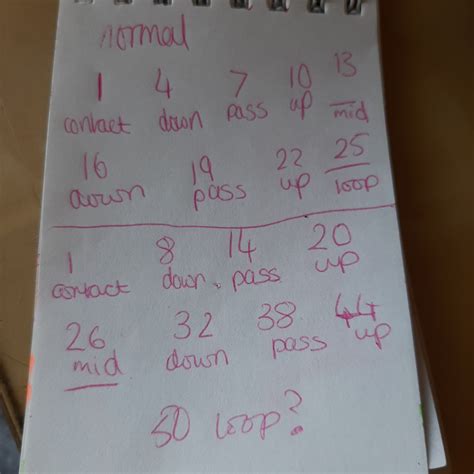 normal
1 4 7 10 13
contact down pass up mid
16 19 22 25
down pass up loop
1 8 14 20
contact down. pass up
26 32 38 44
mid down pass up
50 loop?